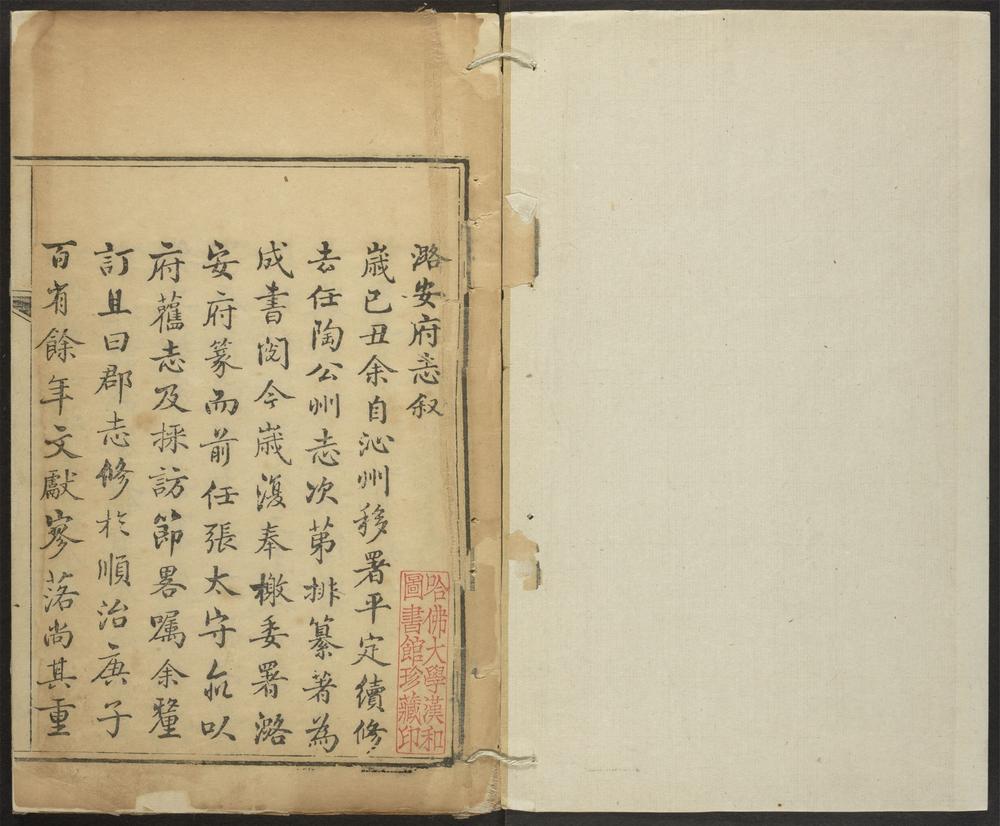 潞安府志叙
歲己丑余自沁州移署平定續修
去任陶公州志次第排纂著為
成書閱今歲復奉檄委署潞
安府篆而前任張太守俞以
府舊志及採訪節畧嘱余釐
訂且曰郡志修於順治庚子
百有餘年文獻寥落尚其重
哈佛大學漢和
圖書館珍藏印